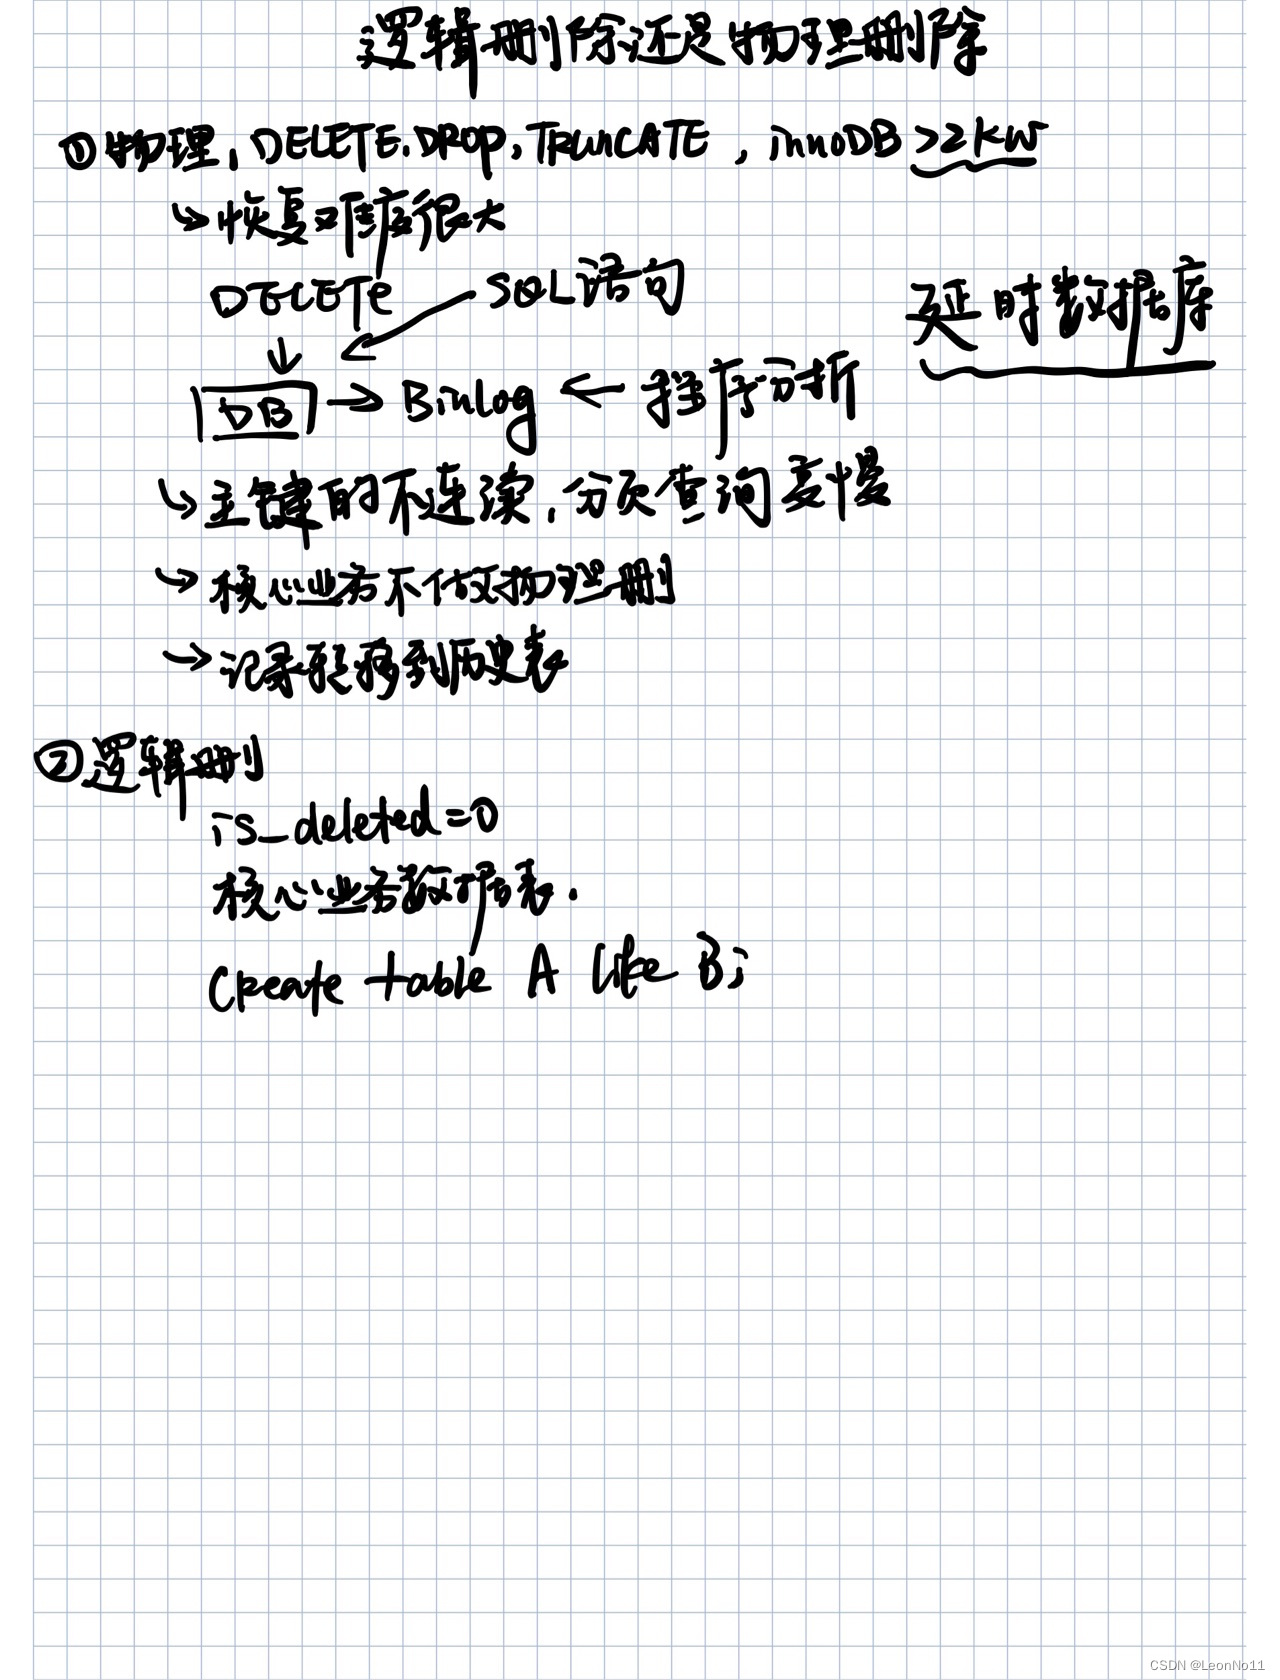 逻辑删除还是物理删除
①物理，DELETE.DROP,TRUNCATE，innoDB >2KW
↳恢复难度很大
DELETE ← SQL语句
延时数据库
↓
DB → Binlog ← 程序分析
↳主键的不连续，分页查询变慢
→核心业务不做物理删
→记录转移到历史表
②逻辑删
is_deleted=0
核心业务数据表.
Create table A like B;
CSDN @LeonNo11